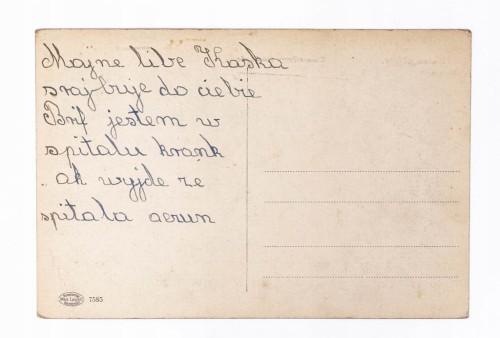 Mojne libe Kaska
srajbuje do ciebie
Brif jestem w
spitalu krank
ak wyjde ze
spitala aerun
7585